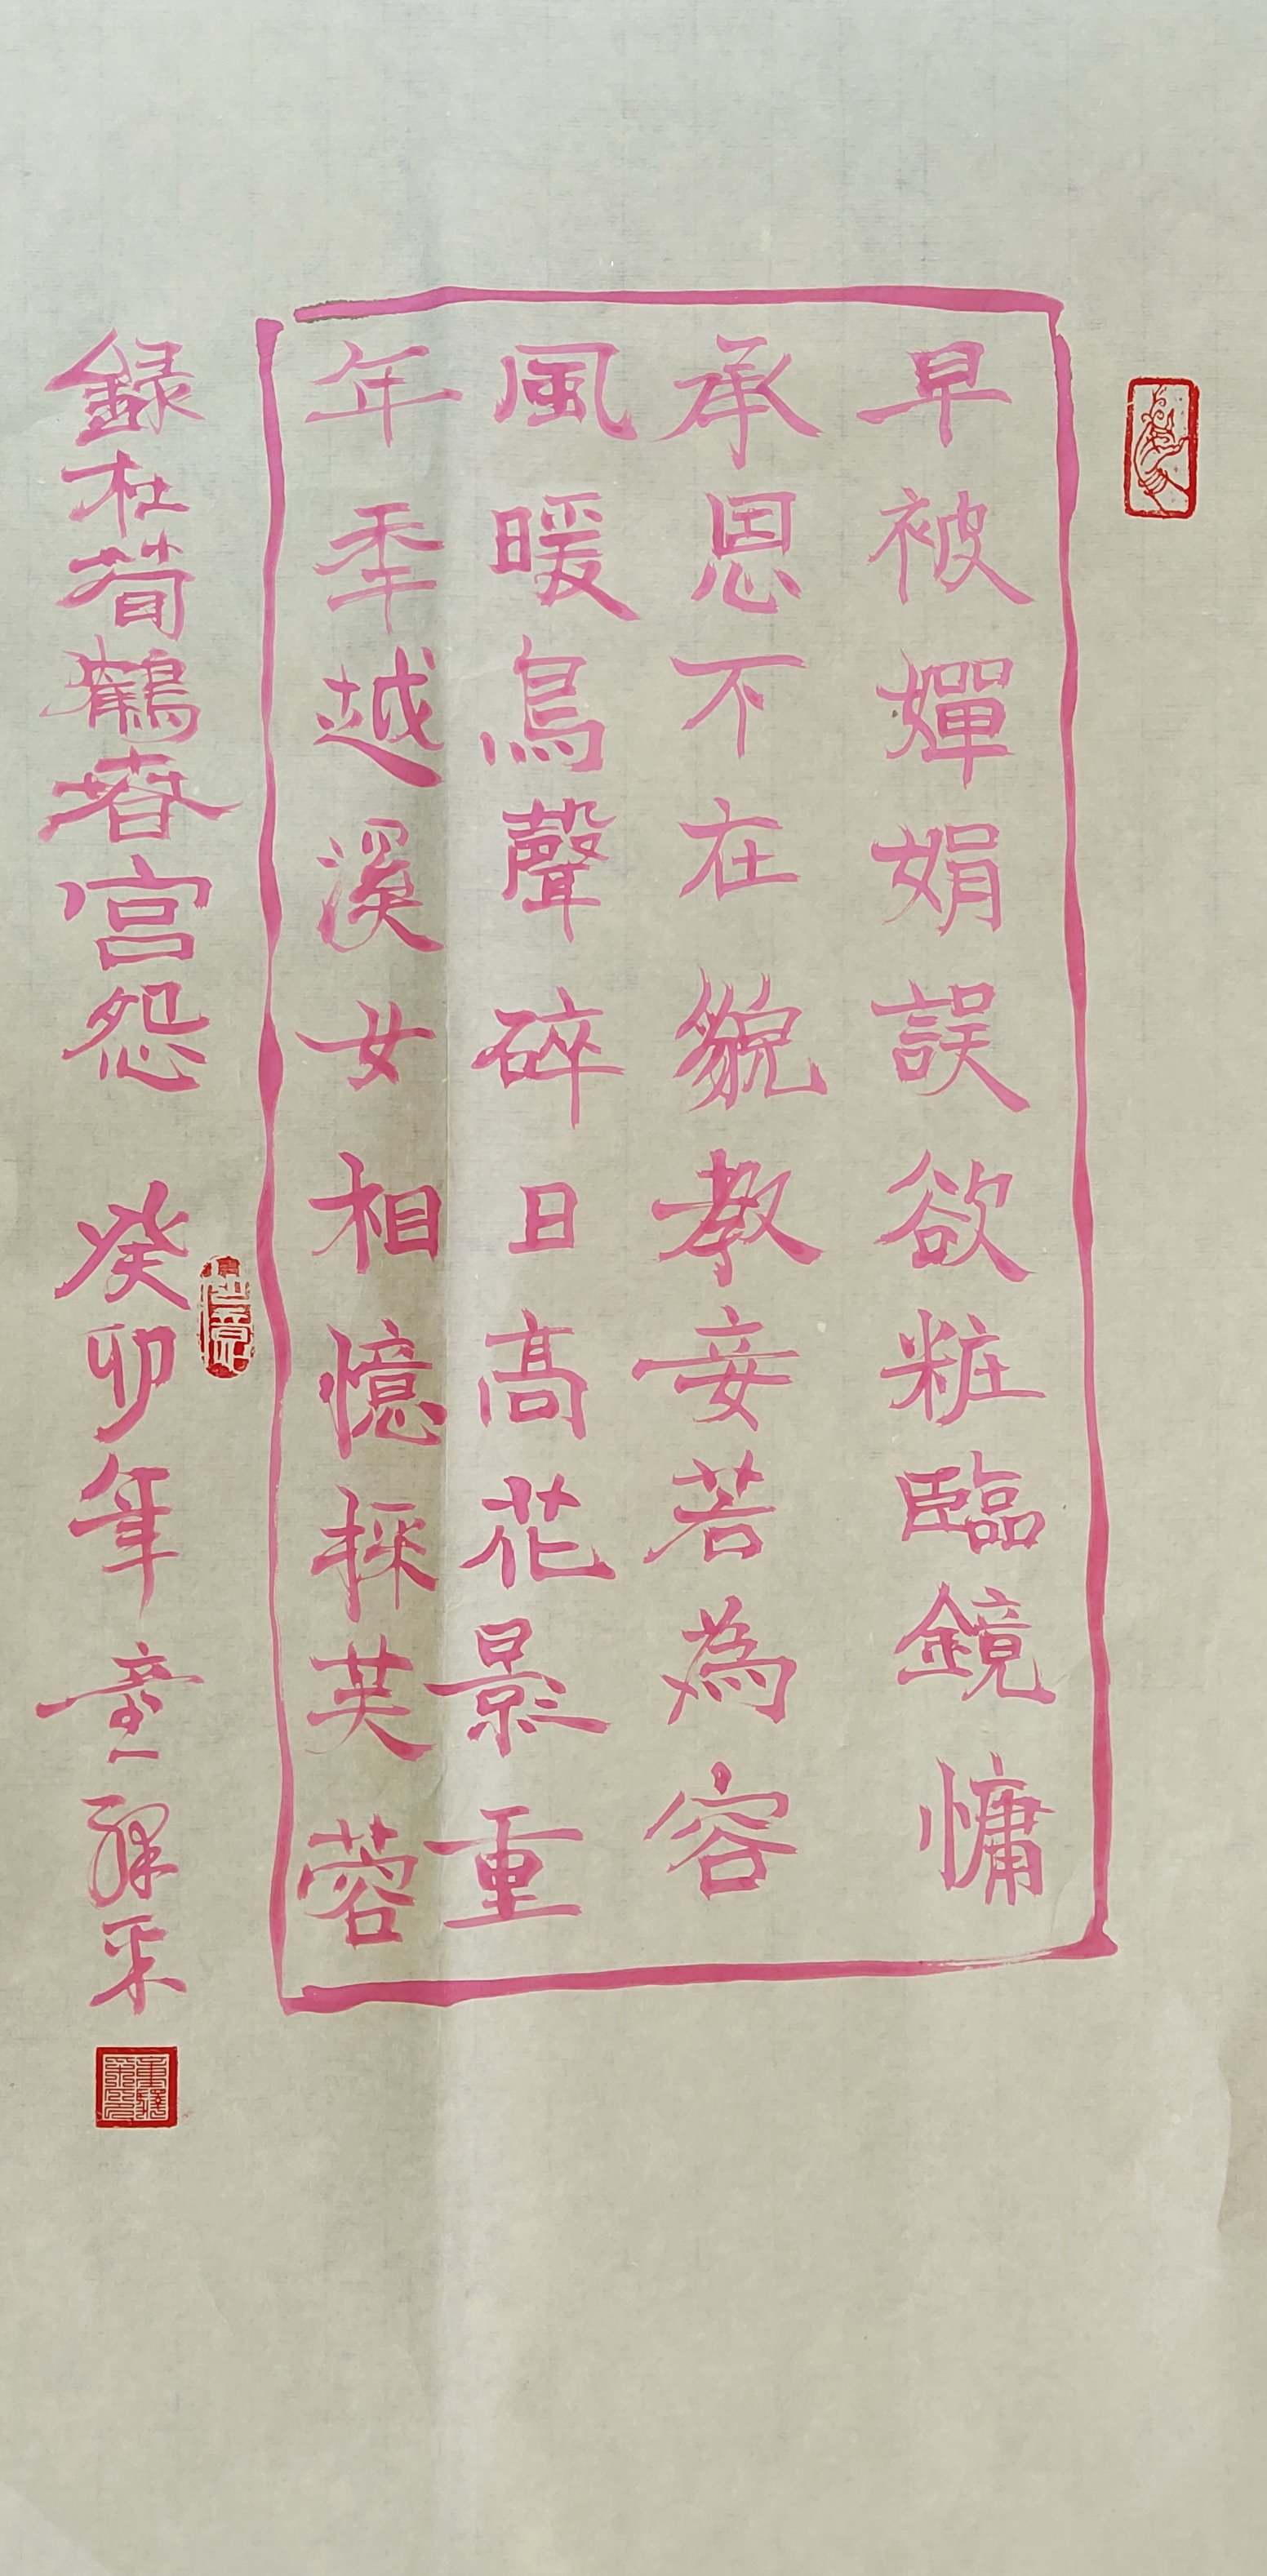 早被嬋娟誤欲粧臨鏡慵
承恩不在貌教妾若為容
風暖鳥聲碎日高花影重
年秊越溪女相憶採芙蓉
録杜荀鶴春宮怨 癸卯年 童驛采